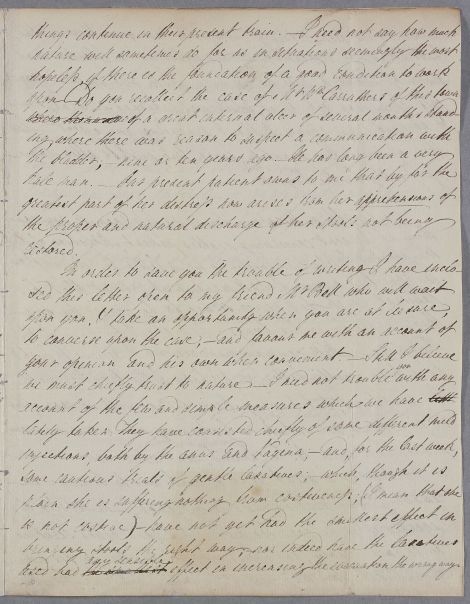 things continue in their present train. — I need not say how much
nature will sometimes do for us in situations seemingly the most
hopeless if there is the foundation of a good condition to work
upon. Do you recollect the case of Mr Wm Carruthers of this town
of a great internal ulcer of several months stand
ing, where there was reason to suspect a communication with
the bladder, — nine or ten years ago. — He has long been a very
man. — Our present patient owns to me that by far the
greatest part of her distress now arises from her apprehensions of
the proper and natural discharge of her stools not being
restored.
In order to save you the trouble of writing I have inclo
sed this letter open to my friend Mr Bell who will wait
upon you, & take an opportunity when you are at leisure,
to converse upon the case; — and favour me with an account of
your opinion and his own when convenient — Still I believe
we must chiefly trust to nature — I need not trouble you with any
account of the few and simple measures which we have
lately taken. They have consisted chiefly of some different mild
injections both by the anus and vagina, — and, for the last week,
some cautious trials of gentle laxatives; — which, though it is
plain she is suffering nothing from costiveness; (I mean that she
is not costive) — have not yet had the smallest effect in
bringing stools the right way; nor indeed have the laxatives
used had any effect in increasing the evacuation the wrong way